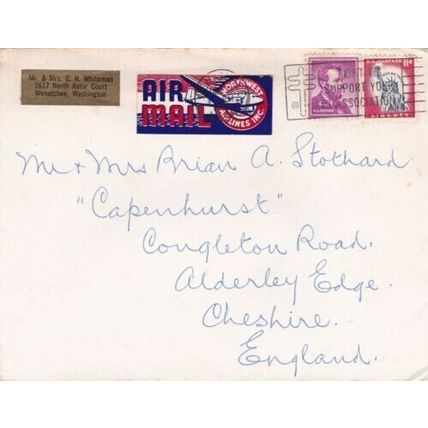 Mr. & Mrs. G. H. Whiteman
1617 North Astor Court
Wenatchee, Washington
AIR
MAIL
NORTHWEST
AIRLINES INC.
U.S. POSTAGE
11¢
LIBERTY
SUPPORT YOUR
ASSOCIATION
Mr & Mrs Brian A. Stothard
"Capenhurst"
Congleton Road.
Alderley Edge.
Cheshire.
England.